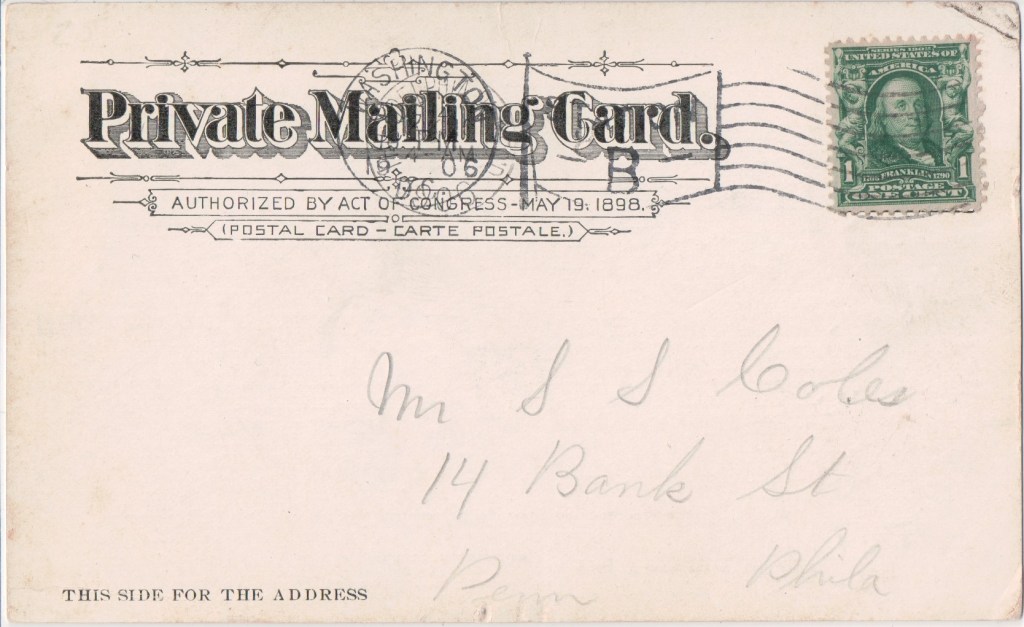 Private Mailing Card.
AUTHORIZED BY ACT OF CONGRESS-MAY 19, 1898.
(POSTAL CARD - CARTE POSTALE.)
WASHINGTON
AM
06
B
SERIES 1902
UNITED STATES OF
AMERICA
1 1
FRANKLIN 1790
POSTAGE
ONE CENT
Mr S S Coles
14 Bank St
Phila
Penn
THIS SIDE FOR THE ADDRESS